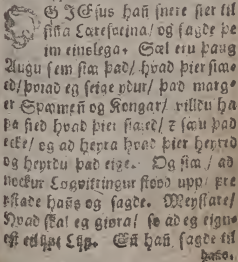 OG JEsus hañ snere sier til
sijna Læresveina/ og sagde þe
im einslega. Sæl eru þaug
Augu sem siaa þad/ hvad þier siaa-
ed/þviad eg seige ydur/ þad marg-
er Spæmeñ og Kongar/ villdu ha
fa sied hvad þier siaed/ ꝛ sau þad
ecke/ og ad heyra hvad þier heyrid
og heyrdu þad eige. Og siaa/ ad
nockur Logvitringur stood upp/ fre
istade hañs og sagde. Meystare/
Hvad skal eg giøra/ so ad eg eign-
est eilijft Lijf. Eñ hañ sagde til
hañs.